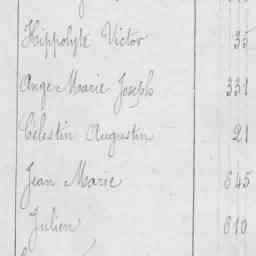 Hippolyte Victor 35
Ange Marie Joseph 331
Célestin Augustin 21
Jean Marie 645
Julien 610